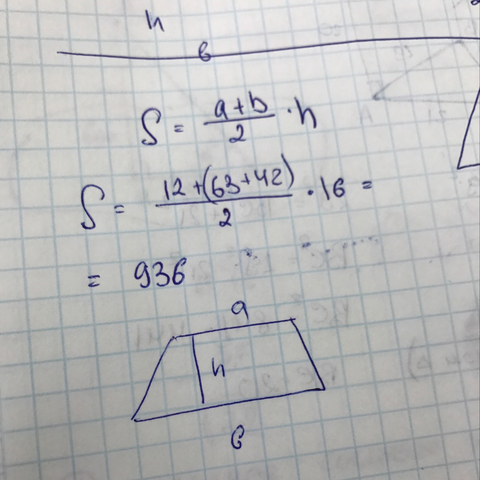 h
в
S = a+b/2 · h
S = 12+(63+42)/2 · 16 =
= 936
a
h
в